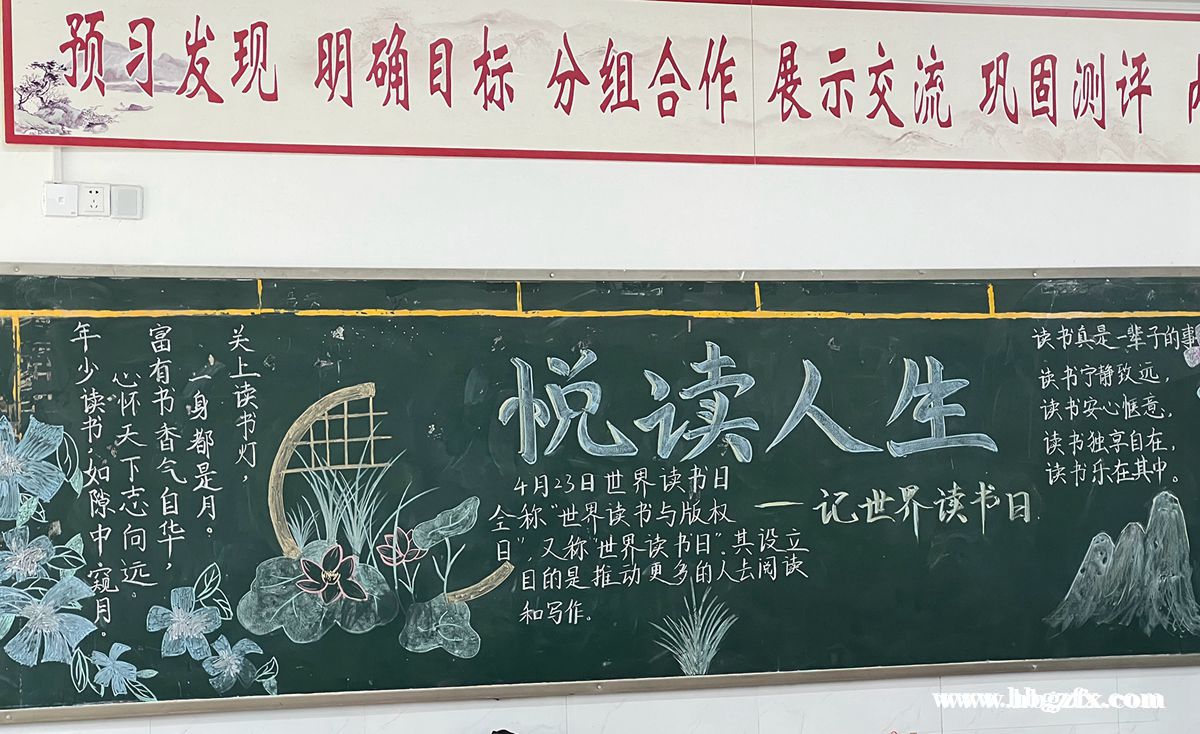 预习发现 明确目标 分组合作 展示交流 巩固测评
关上读书灯，
一身都是月。
富有书香气自华，
心怀天下志向远。
年少读书，如隙中窥月。
悦读人生
—记世界读书日
4月23日世界读书日
全称“世界读书与版权
日”，又称“世界读书日”。其设立
目的是推动更多的人去阅读
和写作。
读书真是一辈子的事
读书宁静致远，
读书安心惬意，
读书独享自在，
读书乐在其中。
www.hbgzfx.com